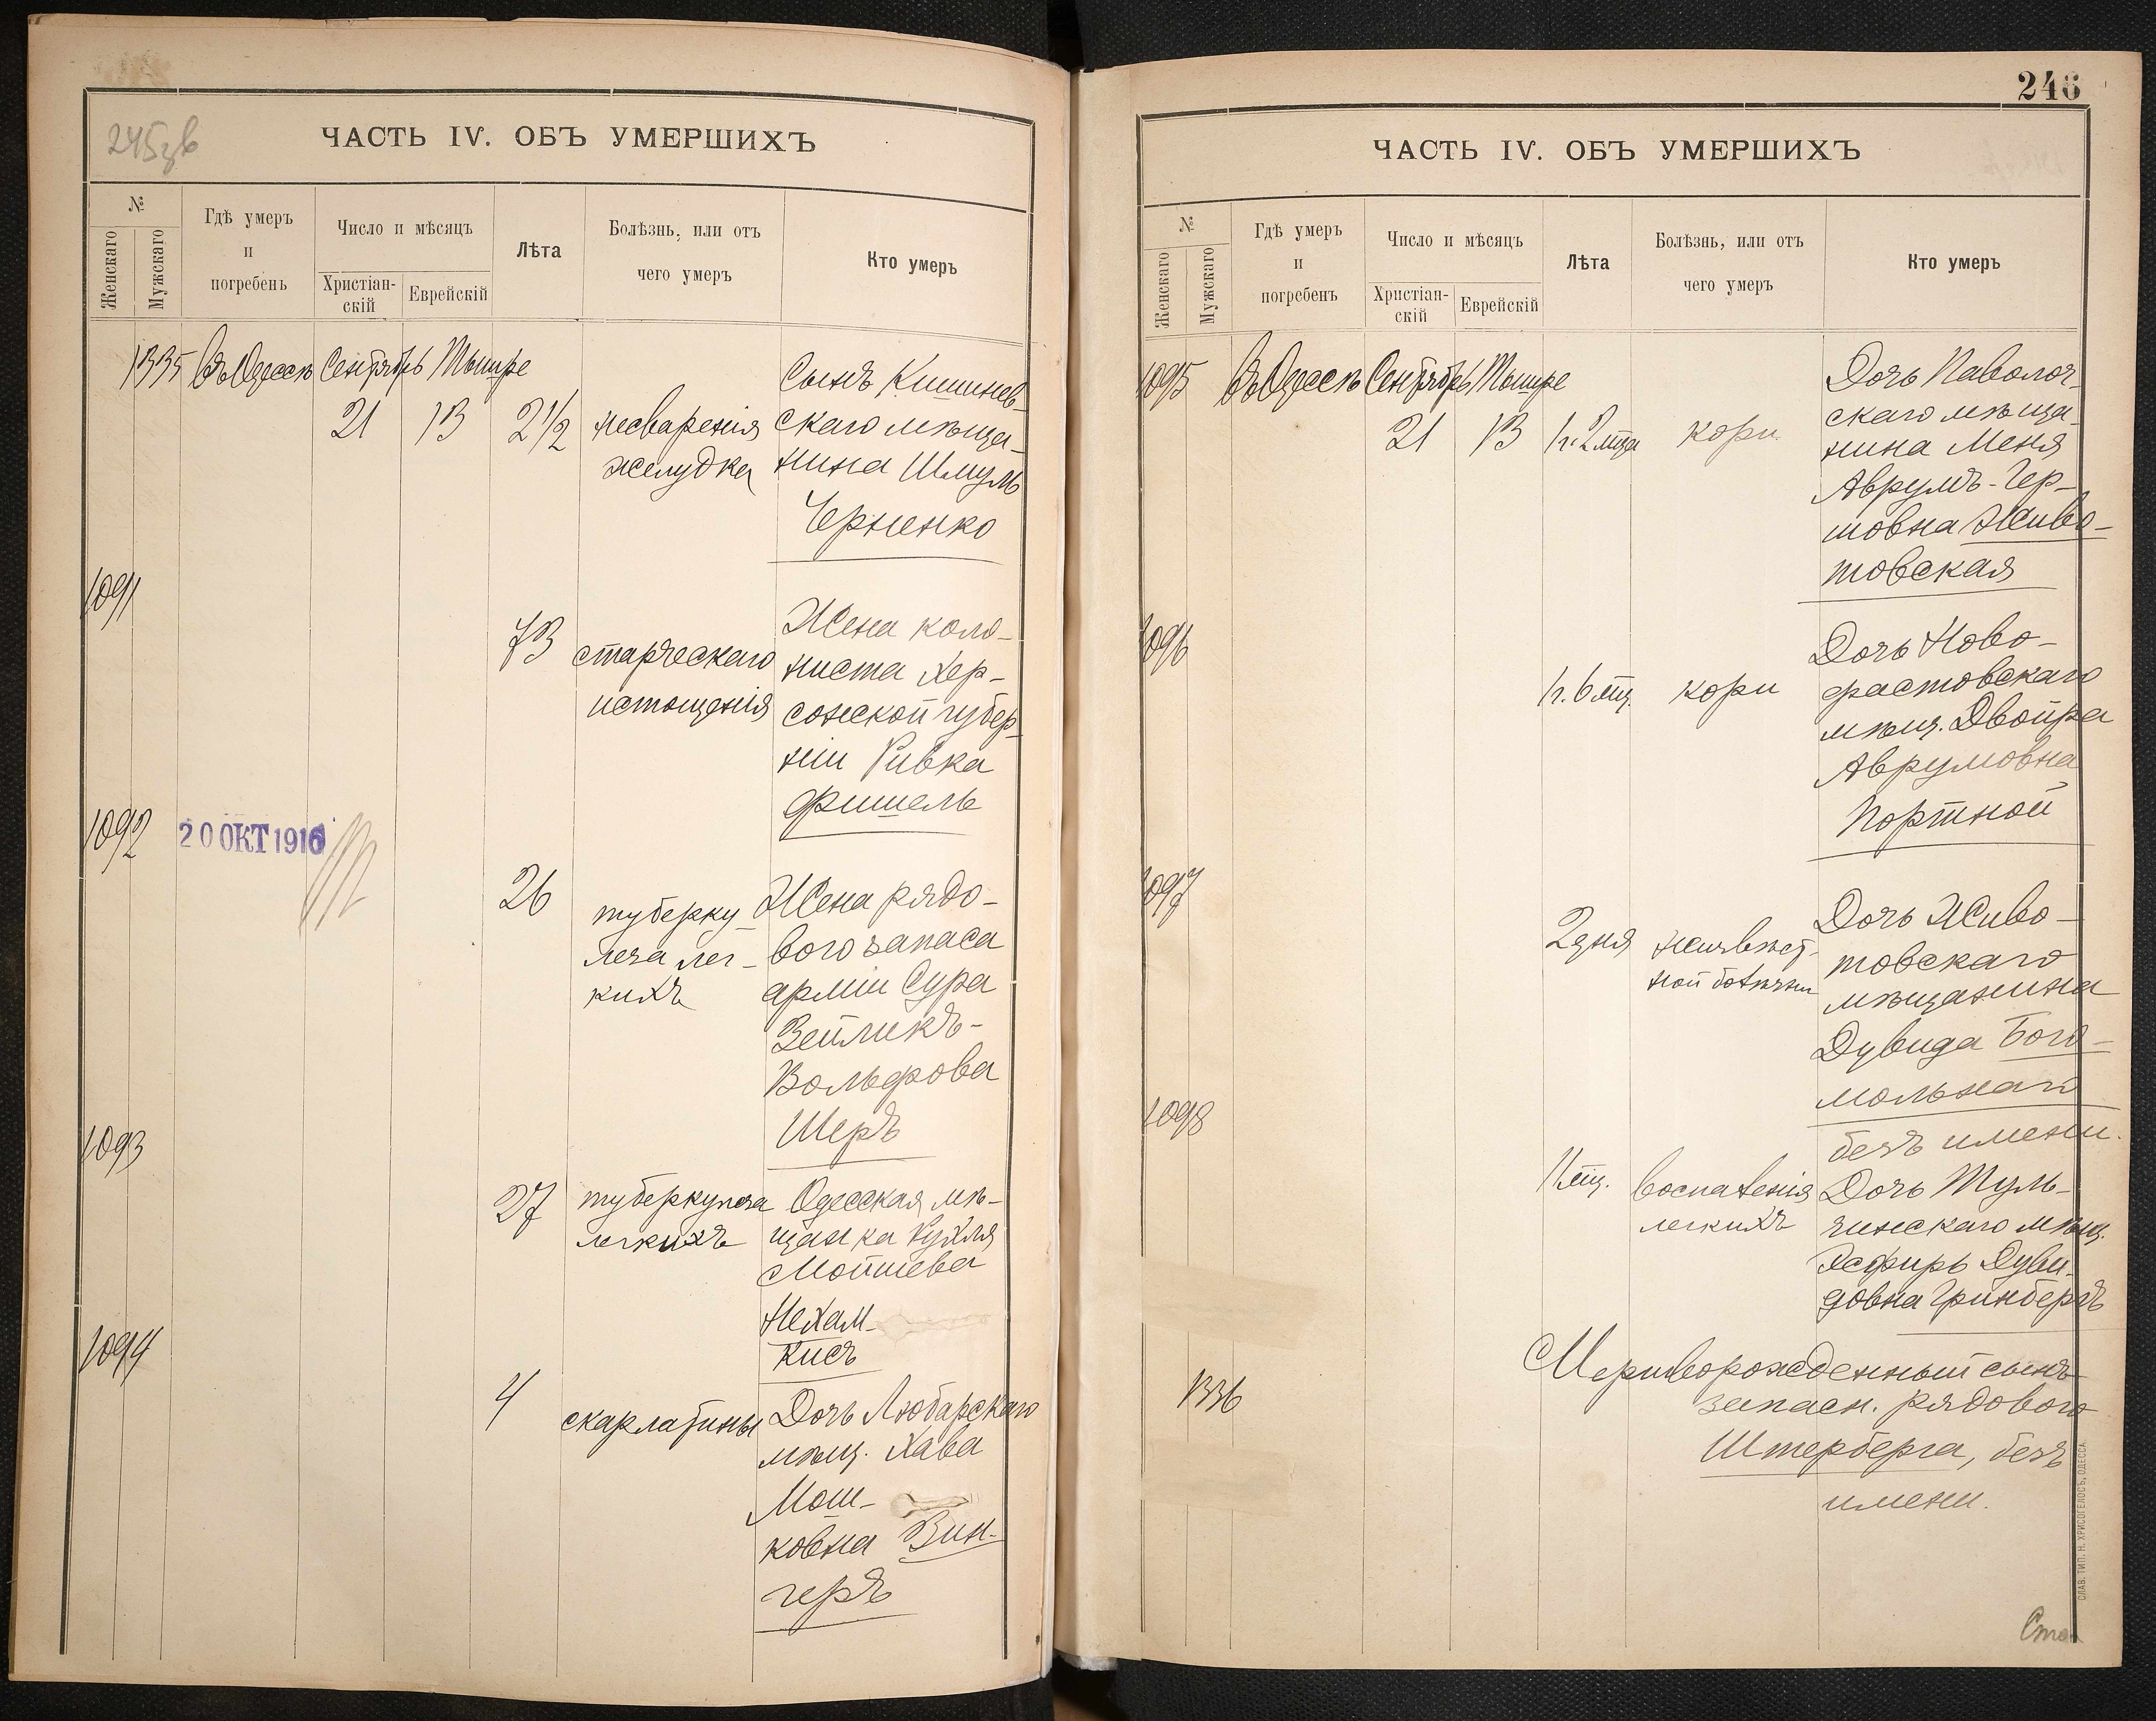 245зв
ЧАСТЬ IV. ОБЪ УМЕРШИХЪ
№
Женскаго
Мужскаго
Гдѣ умеръ
и
погребенъ
Число и мѣсяцъ
Христіан-
скій
Еврейскій
Лѣта
Болѣзнь, или отъ
чего умеръ
Кто умеръ
1335 Въ Одессѣ Сентябрь Тышре
21 13 2½ несваренія
желудка
Сынъ Кишинев-
скаго мѣща-
нина Шмуль
Черненко
1091
73 старческаго
истощенія
Жена коло-
ниста Хер-
сонской губер-
ніи Ривка
Фишель
1092
20 ОКТ 1916
26 туберку-
леза лег-
кихъ
Жена рядо-
вого запаса
арміи Сура
Зейликъ-
Вольфова
Шеръ
1093
27 туберкулеза
легкихъ
Одесская мѣ-
щанка Рухля
Мойшева
Нехам-
кисъ
1094
4 скарлатины
Дочь Любарскаго
мѣщ. Хава
Мош-
ковна Вин-
геръ
246
ЧАСТЬ IV. ОБЪ УМЕРШИХЪ
№
Женскаго
Мужскаго
Гдѣ умеръ
и
погребенъ
Число и мѣсяцъ
Христіан-
скій
Еврейскій
Лѣта
Болѣзнь, или отъ
чего умеръ
Кто умеръ
1095 Въ Одессѣ Сентябрь Тышре
21 13 1г. 2 мца кори
Дочь Паволоч-
скаго мѣща-
нина Меня
Аврумъ-Гер-
шовна Живо-
товская
1096
1г. 6 мц. кори
Дочь Ново-
фастовскаго
мѣщ. Двойра
Аврумовна
Портной
1097
2 дня неизвѣст-
ной болѣзни
Дочь Живо-
товскаго
мѣщанина
Дувида Бого-
мольнаго
безъ имени.
1098
11 мц. воспаленія
легкихъ
Дочь Туль-
чинскаго мѣщ.
Эсфирь Дуви-
довна Гринбергъ
1336
Мертворожденный сынъ
запасн. рядового
Штерберга, безъ
имени.
СЛАВ. ТИП. Н. ХРИСОГЕЛОСЪ, ОДЕССА